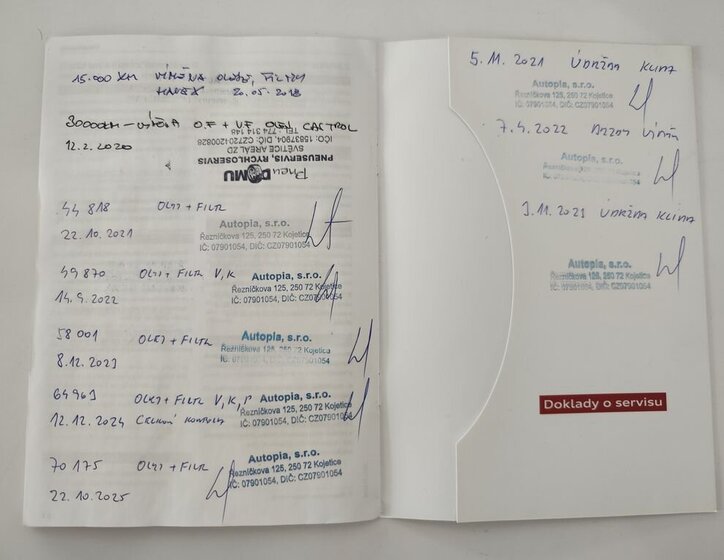 15.000 KM VÝMĚNA OLEJE, FILTRY
20.05.2018
30000KM - VÝMĚNA O.F + V.F OLEJ CASTROL
12.2.2020
Pneu DOMU
PNEUSERVIS, RYCHLOSERVIS
SVĚTICE AREÁL ZD
IČO: 15837904, DIČ: CZ7204200828
TEL.: 774 314 146
44 818 OLEJ + FILTR
22.10.2021
Autopia, s.r.o.
Řezníčkova 125, 250 72 Kojetice
IČ: 07901054, DIČ: CZ07901054
49 870 OLEJ + FILTR V, K
14.9.2022
Autopia, s.r.o.
Řezníčkova 125, 250 72 Kojetice
IČ: 07901054, DIČ: CZ07901054
58 001 OLEJ + FILTR
8.12.2023
Autopia, s.r.o.
Řezníčkova 125, 250 72 Kojetice
IČ: 07901054, DIČ: CZ07901054
64963 OLEJ + FILTR V, K, P
12.12.2024 CELKOVÁ KONTROLA
Autopia, s.r.o.
Řezníčkova 125, 250 72 Kojetice
IČ: 07901054, DIČ: CZ07901054
70 175 OLEJ + FILTR
22.10.2025
Autopia, s.r.o.
Řezníčkova 125, 250 72 Kojetice
IČ: 07901054, DIČ: CZ07901054
5.11.2021 ÚDRŽBA KLIMA
Autopia, s.r.o.
Řezníčkova 125, 250 72 Kojetice
IČ: 07901054, DIČ: CZ07901054
7.4.2022
Autopia, s.r.o.
3.11.2021 ÚDRŽBA KLIMA
Autopia, s.r.o.
Řezníčkova 125, 250 72 Kojetice
IČ: 07901054, DIČ: CZ07901054
Doklady o servisu